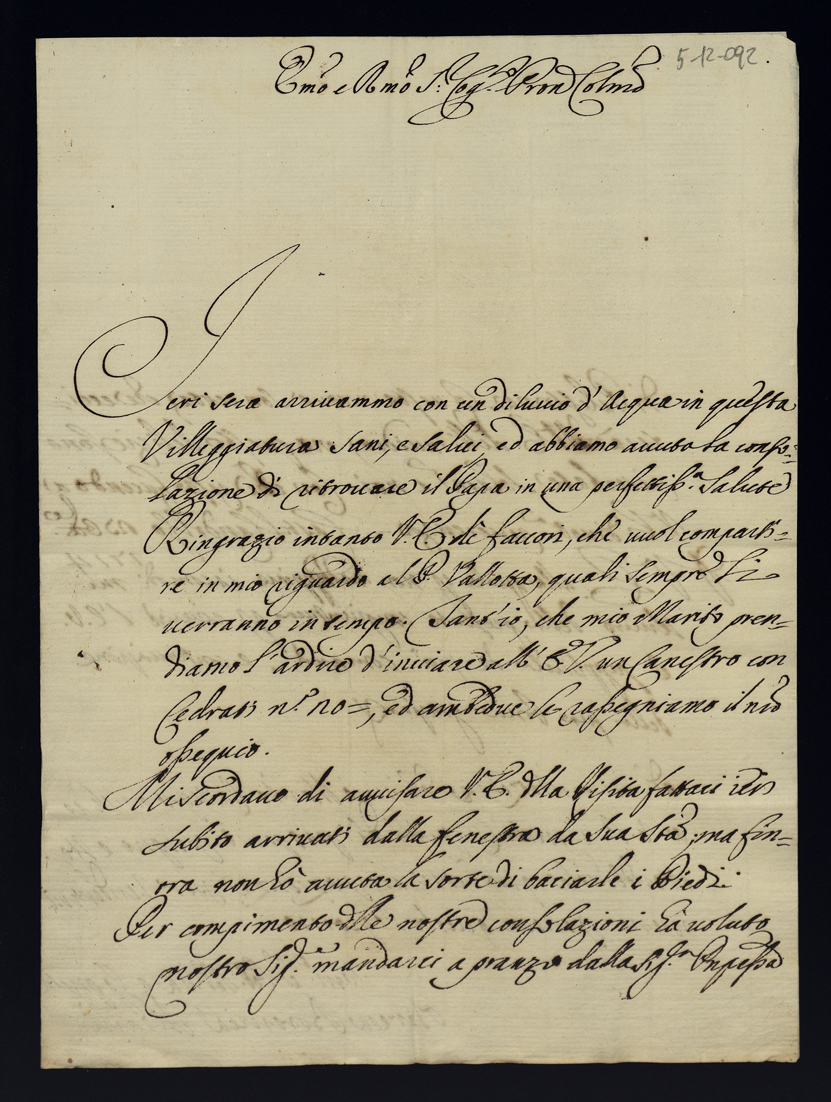 5-12-092.
Em̃o e Rm̃o Sig.r Cog.to Pron Colm̃o
Ieri sera arrivammo con un diluvio d'Acqua in questa
Villeggiatura sani, e salvi, ed abbiamo avuta la conso=
lazione di ritrovare il Papa in una perfettiss.a Salute
Ringrazio intanto V. E. dè favori, chè vuol comparti=
re in mio riguardo al P. Vallotta, quali sempre li
verranno in tempo. Tant'io, che mio Marito pren=
diamo l'ardire d'inviare all' E. V. un Canestro con
Cedrati n.o 20=, ed ambedue le rassegniamo il nr̃o
ossequio.
Mi scordavo di avvisare V. E. dlla Visita fattaci ieri
subito arrivati dalla fenestra da Sua Stà, ma fin=
ora non hò avuta la sorte di baciarle i Piedi:
Per compimento dlle nostre consolazioni hà voluto
nostro Sig.re mandarci a pranzo dalla Sig.ra Pnpessa